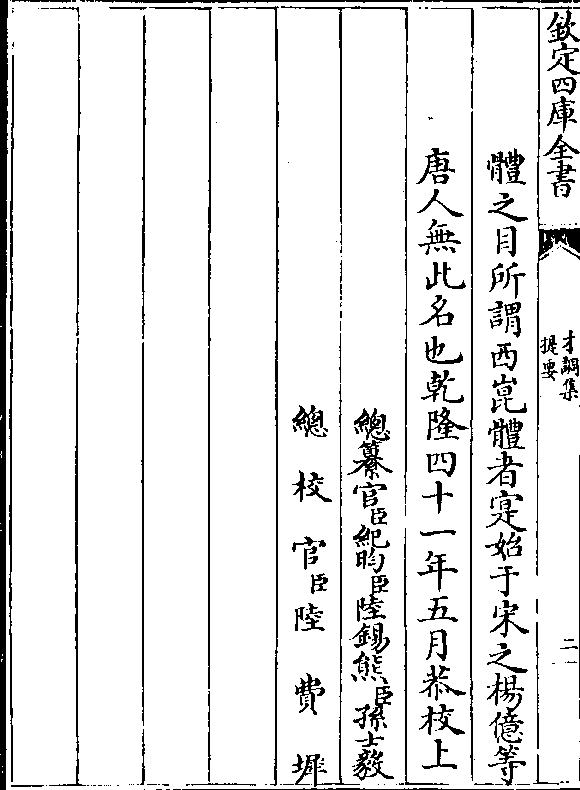 欽定四庫全書
才調集
提要
二
體之目所謂西崑體者寔始于宋之楊億等
唐人無此名也乾隆四十一年五月恭校上
總纂官臣紀昀臣陸錫熊臣孫士毅
總校官臣陸費墀